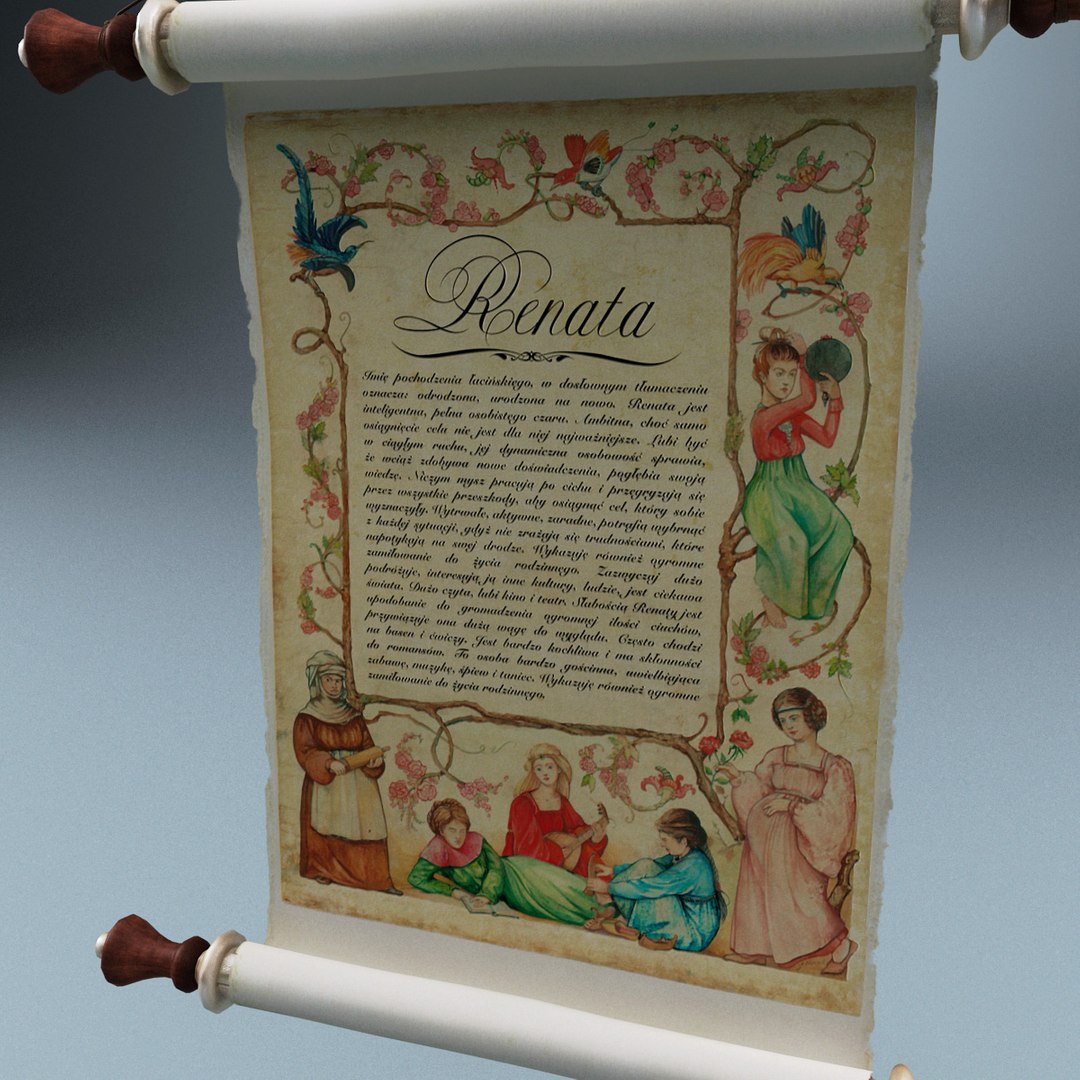 Renata
Imię pochodzenia łacińskiego, w dosłownym tłumaczeniu
oznacza: odrodzona, urodzona na nowo. Renata jest
inteligentna, pełna osobistego czaru. Ambitna, choć samo
osiągnięcie celu nie jest dla niej najważniejsze. Lubi być
w ciągłym ruchu, jej dynamiczna osobowość sprawia,
że wciąż zdobywa nowe doświadczenia, pogłębia swoją
wiedzę. Niczym mysz pracują po cichu i przegryzają się
przez wszystkie przeszkody, aby osiągnąć cel, który sobie
wyznaczyły. Wytrwałe, aktywne, zaradne, potrafią wybrnąć
z każdej sytuacji, gdyż nie zrażają się trudnościami, które
napotykają na swej drodze. Wykazuje również ogromne
zamiłowanie do życia rodzinnego. Zazwyczaj dużo
podróżuje, interesują ją inne kultury, ludzie, jest ciekawa
świata. Dużo czyta, lubi kino i teatr. Słabością Renaty jest
upodobanie do gromadzenia ogromnej ilości ciuchów,
przywiązuje ona dużą wagę do wyglądu. Często chodzi
na basen i ćwiczy. Jest bardzo kochliwa i ma skłonności
do romansów. To osoba bardzo gościnna, uwielbiająca
zabawę, muzykę, śpiew i taniec. Wykazuje również ogromne
zamiłowanie do życia rodzinnego.